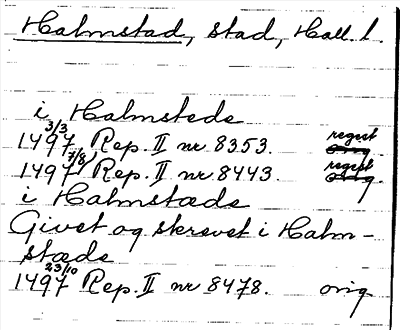 Halmstad, stad, Hall. l.
i Halmstede
1497 3/3, Rep. II nr 8353. regest orig
1497 7/8, Rep. II nr 8443. regest orig.
i Halmstæde
Givet og skrevet i Halm-
stæde
1497 23/10 Rep. II nr 8478. orig